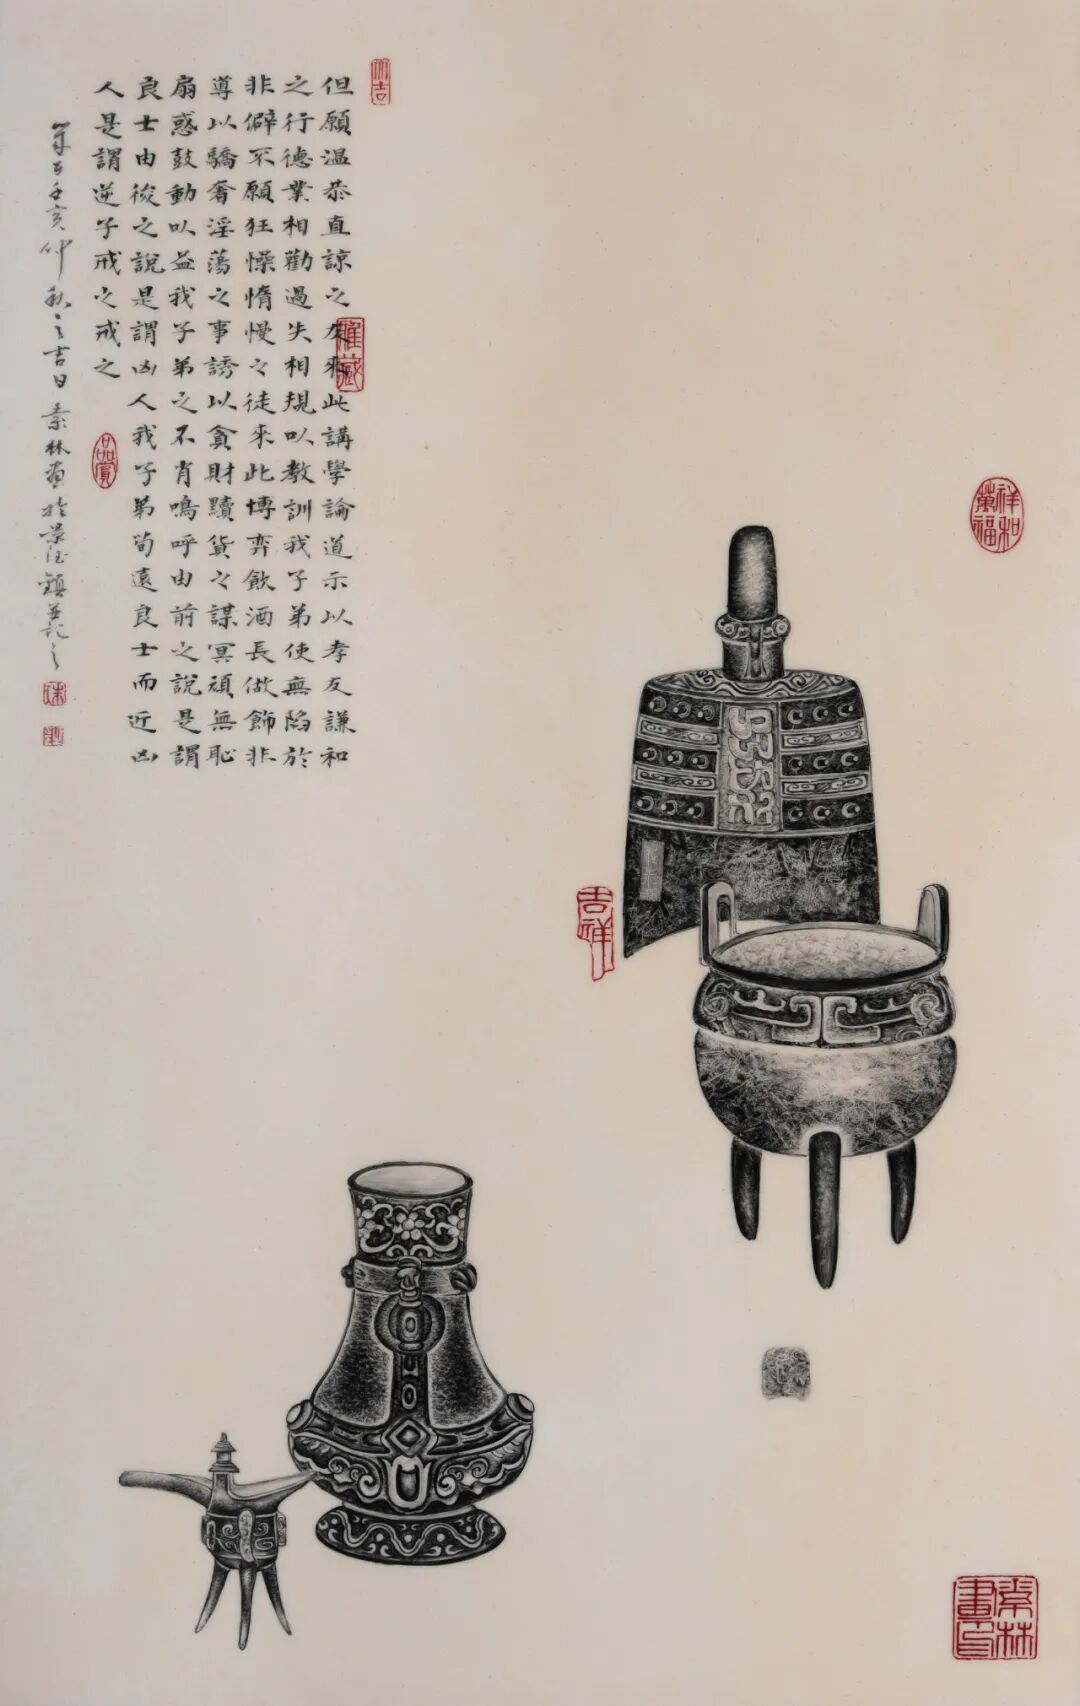 大吉
但願温恭直諒之友來此講學論道示以孝友謙和
之行德業相勸過失相規以教訓我子弟使無陷於
非僻不願狂懆惰慢之徒來此博弈飲酒長傲飾非
導以驕奢淫蕩之事誘以貪財黷貨之謀冥頑無恥
扇惑鼓動以益我子弟之不肖鳴呼由前之說是謂
良士由後之說是謂凶人我子弟苟遠良士而近凶
人是謂逆子戒之戒之
亥仲秋之吉日素林畫於景德鎮並記之
雅藏
品賞
祥和萬福
吉祥
素林畫印